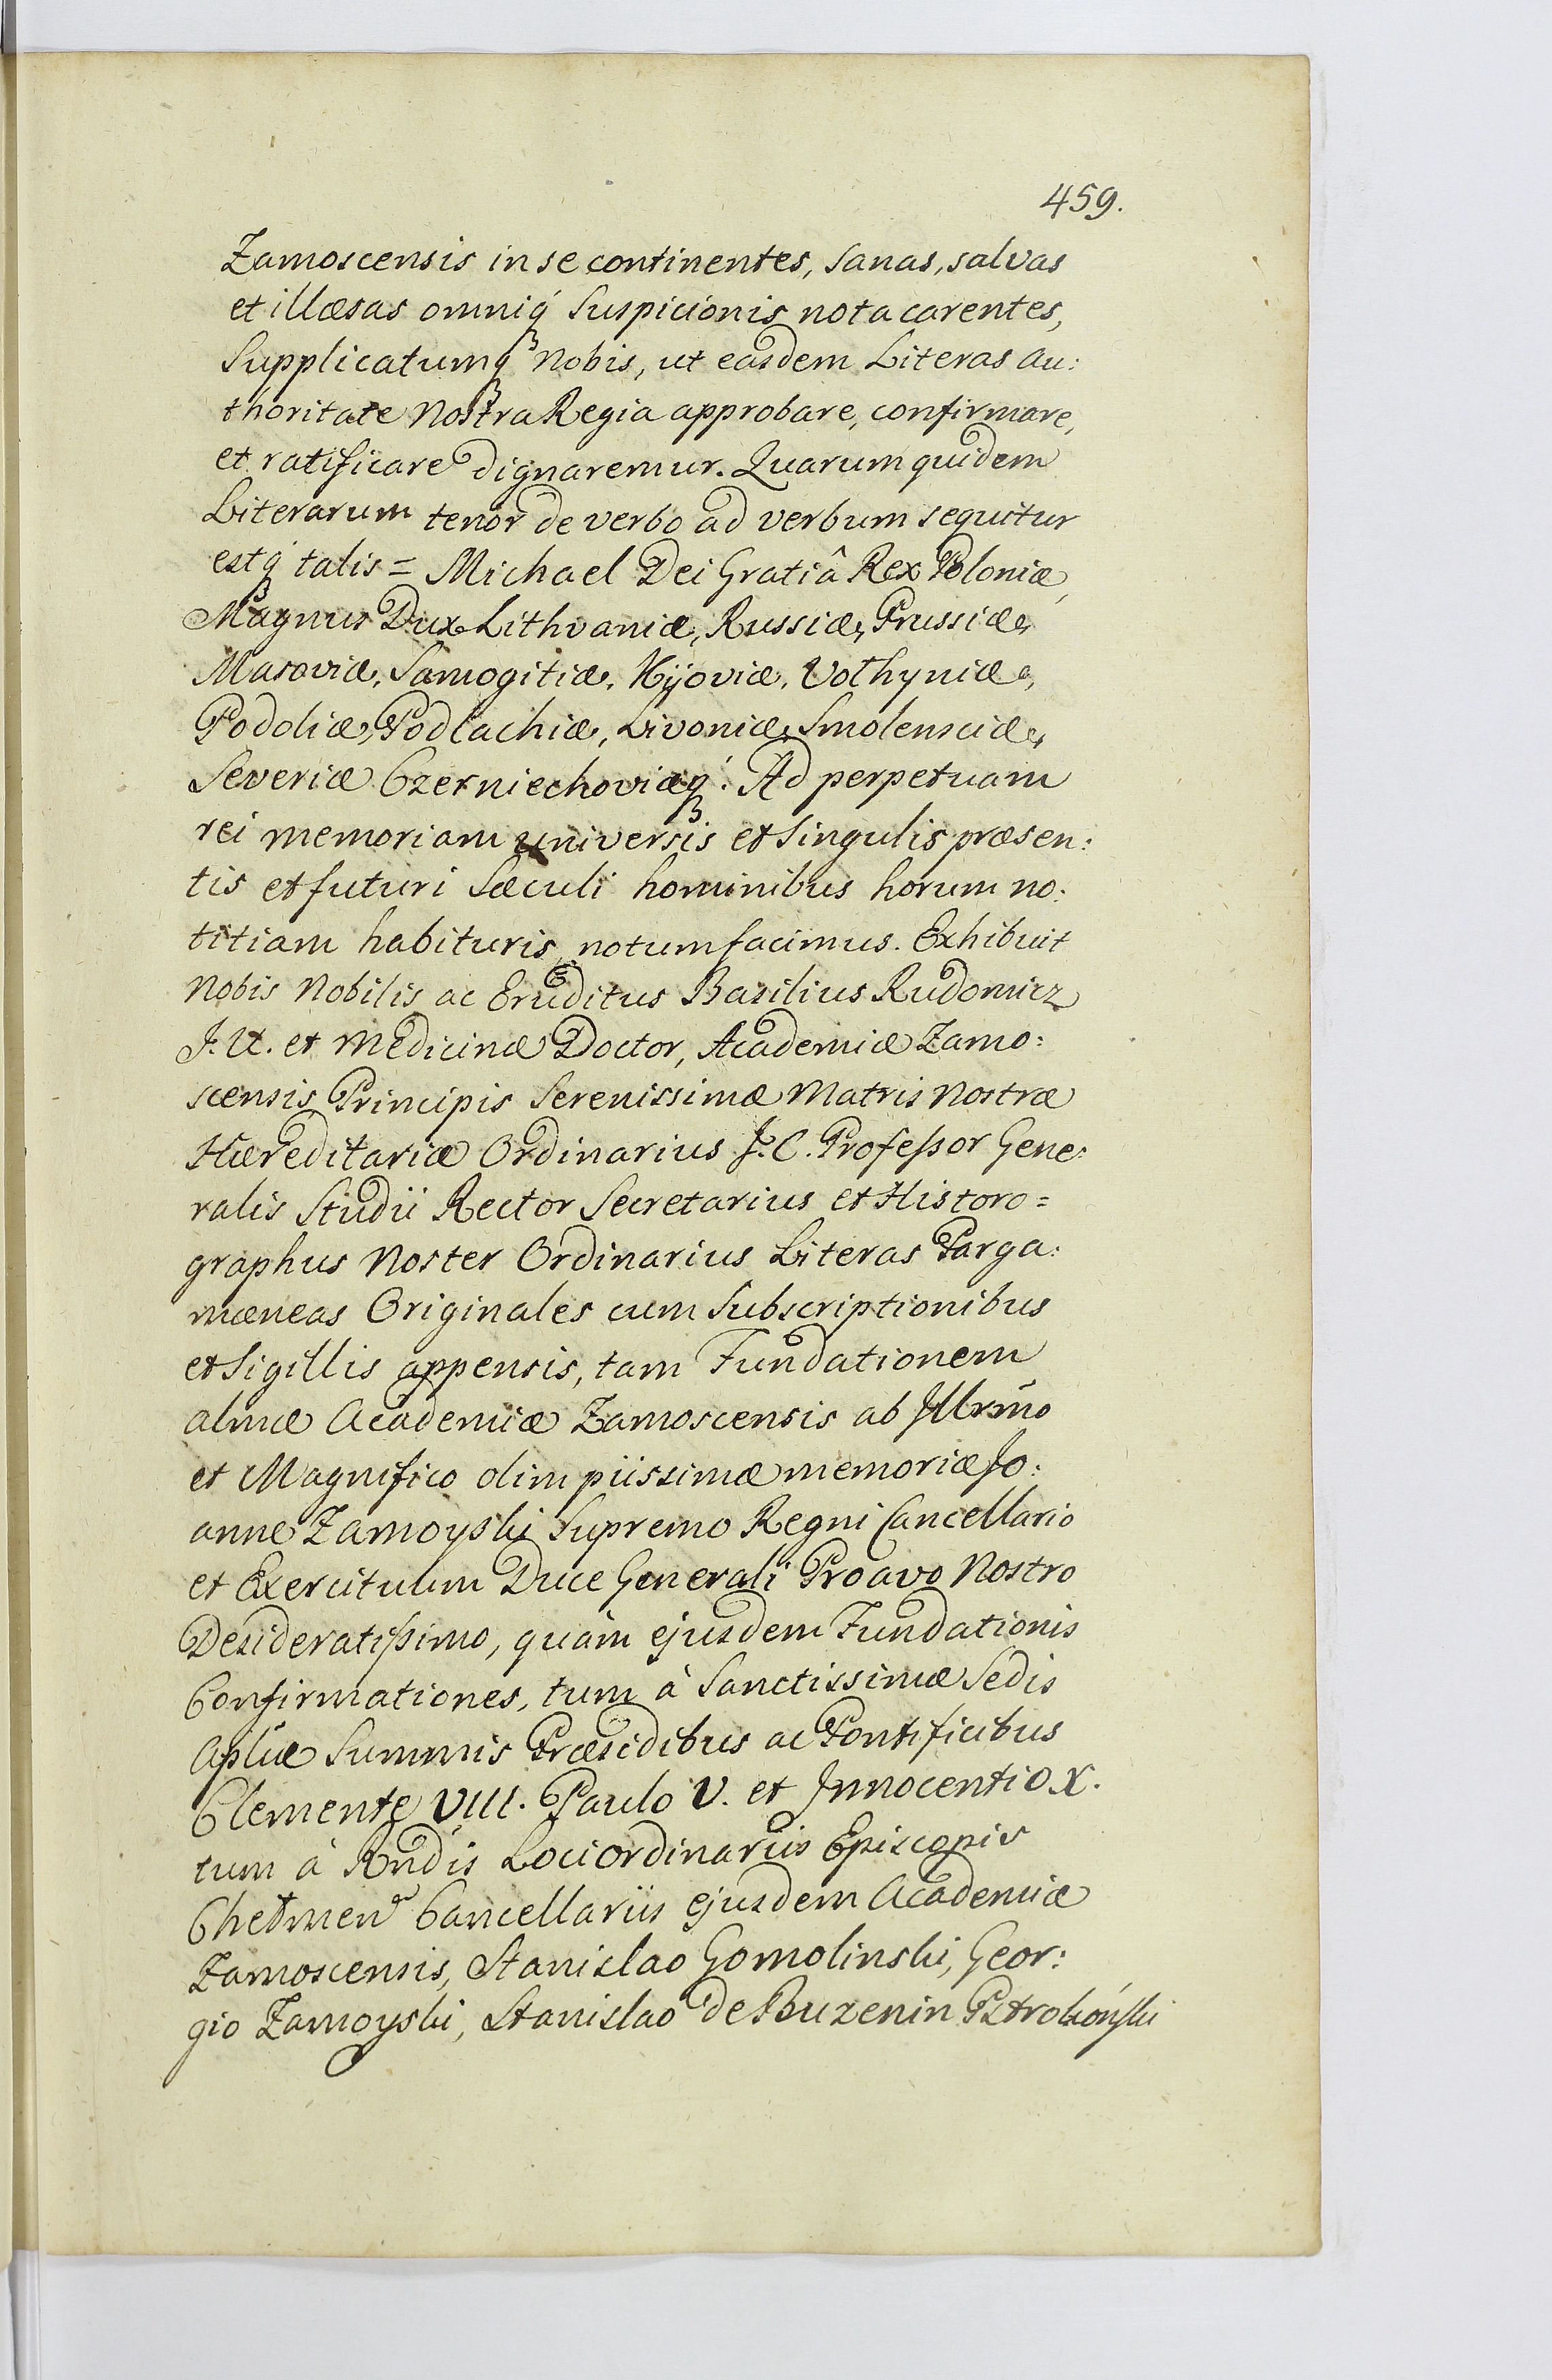 459.
Zamoscensis in se continentes, sanas, salvas
et illæsas omniq́ꝫ Suspicionis nota carentes,
Supplicatumqꝫ Nobis, ut easdem Literas au:
thoritate Nostra Regia approbare, confirmare,
et ratificare dignaremur. Quarum quidem
Literarum tenor de verbo ad verbum sequitur
estq́ꝫ talis = Michael Dei Gratiâ Rex Poloniæ,
Magnus Dux Lithvaniæ, Russiæ, Prussiæ,
Masoviæ, Samogitiæ, Kijoviæ, Volhyniæ,
Podoliæ, Podlachiæ, Livoniæ, Smolensciæ,
Severiæ Czerniechoviæq́ꝫ. Ad perpetuam
rei memoriam universis et singulis præsen:
tis et futuri Sæculi hominibus horum no:
titiam habituris, notum facimus. Exhibuit
Nobis Nobilis ac Eruditus Basilius Rudomicz
J. U. et Medicinæ Doctor, Academiæ Zamo:
scensis Principis Serenissimæ Matris Nostræ
Hæreditariæ Ordinarius J. C. Professor Gene:
ralis Studii Rector Secretarius et Historo=
graphus Noster Ordinarius Literas Parga:
mæneas Originales cum Subscriptionibus
et Sigillis appensis, tam Fundationem
almæ Academiæ Zamoscensis ab Illrmo
et Magnifico olim piissimæ memoriæ Jo:
anne Zamoyski Supremo Regni Cancellario
et Exercituum Duce Generali Proavo Nostro
Desideratissimo, quàm ejusdem Fundationis
Confirmationes, tum à Sanctissimæ Sedis
Aplicæ Summis Præsidibus ac Pontificibus
Clemente VIII. Paulo V. et Innocentio X.
tum à Rndis Loci ordinariis Episcopis
Chełmen Cancellariis ejusdem Academiæ
Zamoscensis, Stanislao Gomolinski, Geor:
gio Zamoyski, Stanislao de Buzenin Pstrokóński